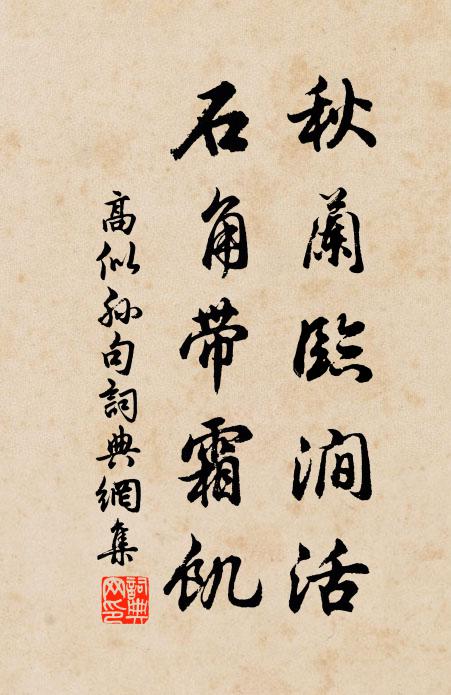 秋蘭臨澗活
石角帶霜飢
高似孫句詞典網集
詞典網印